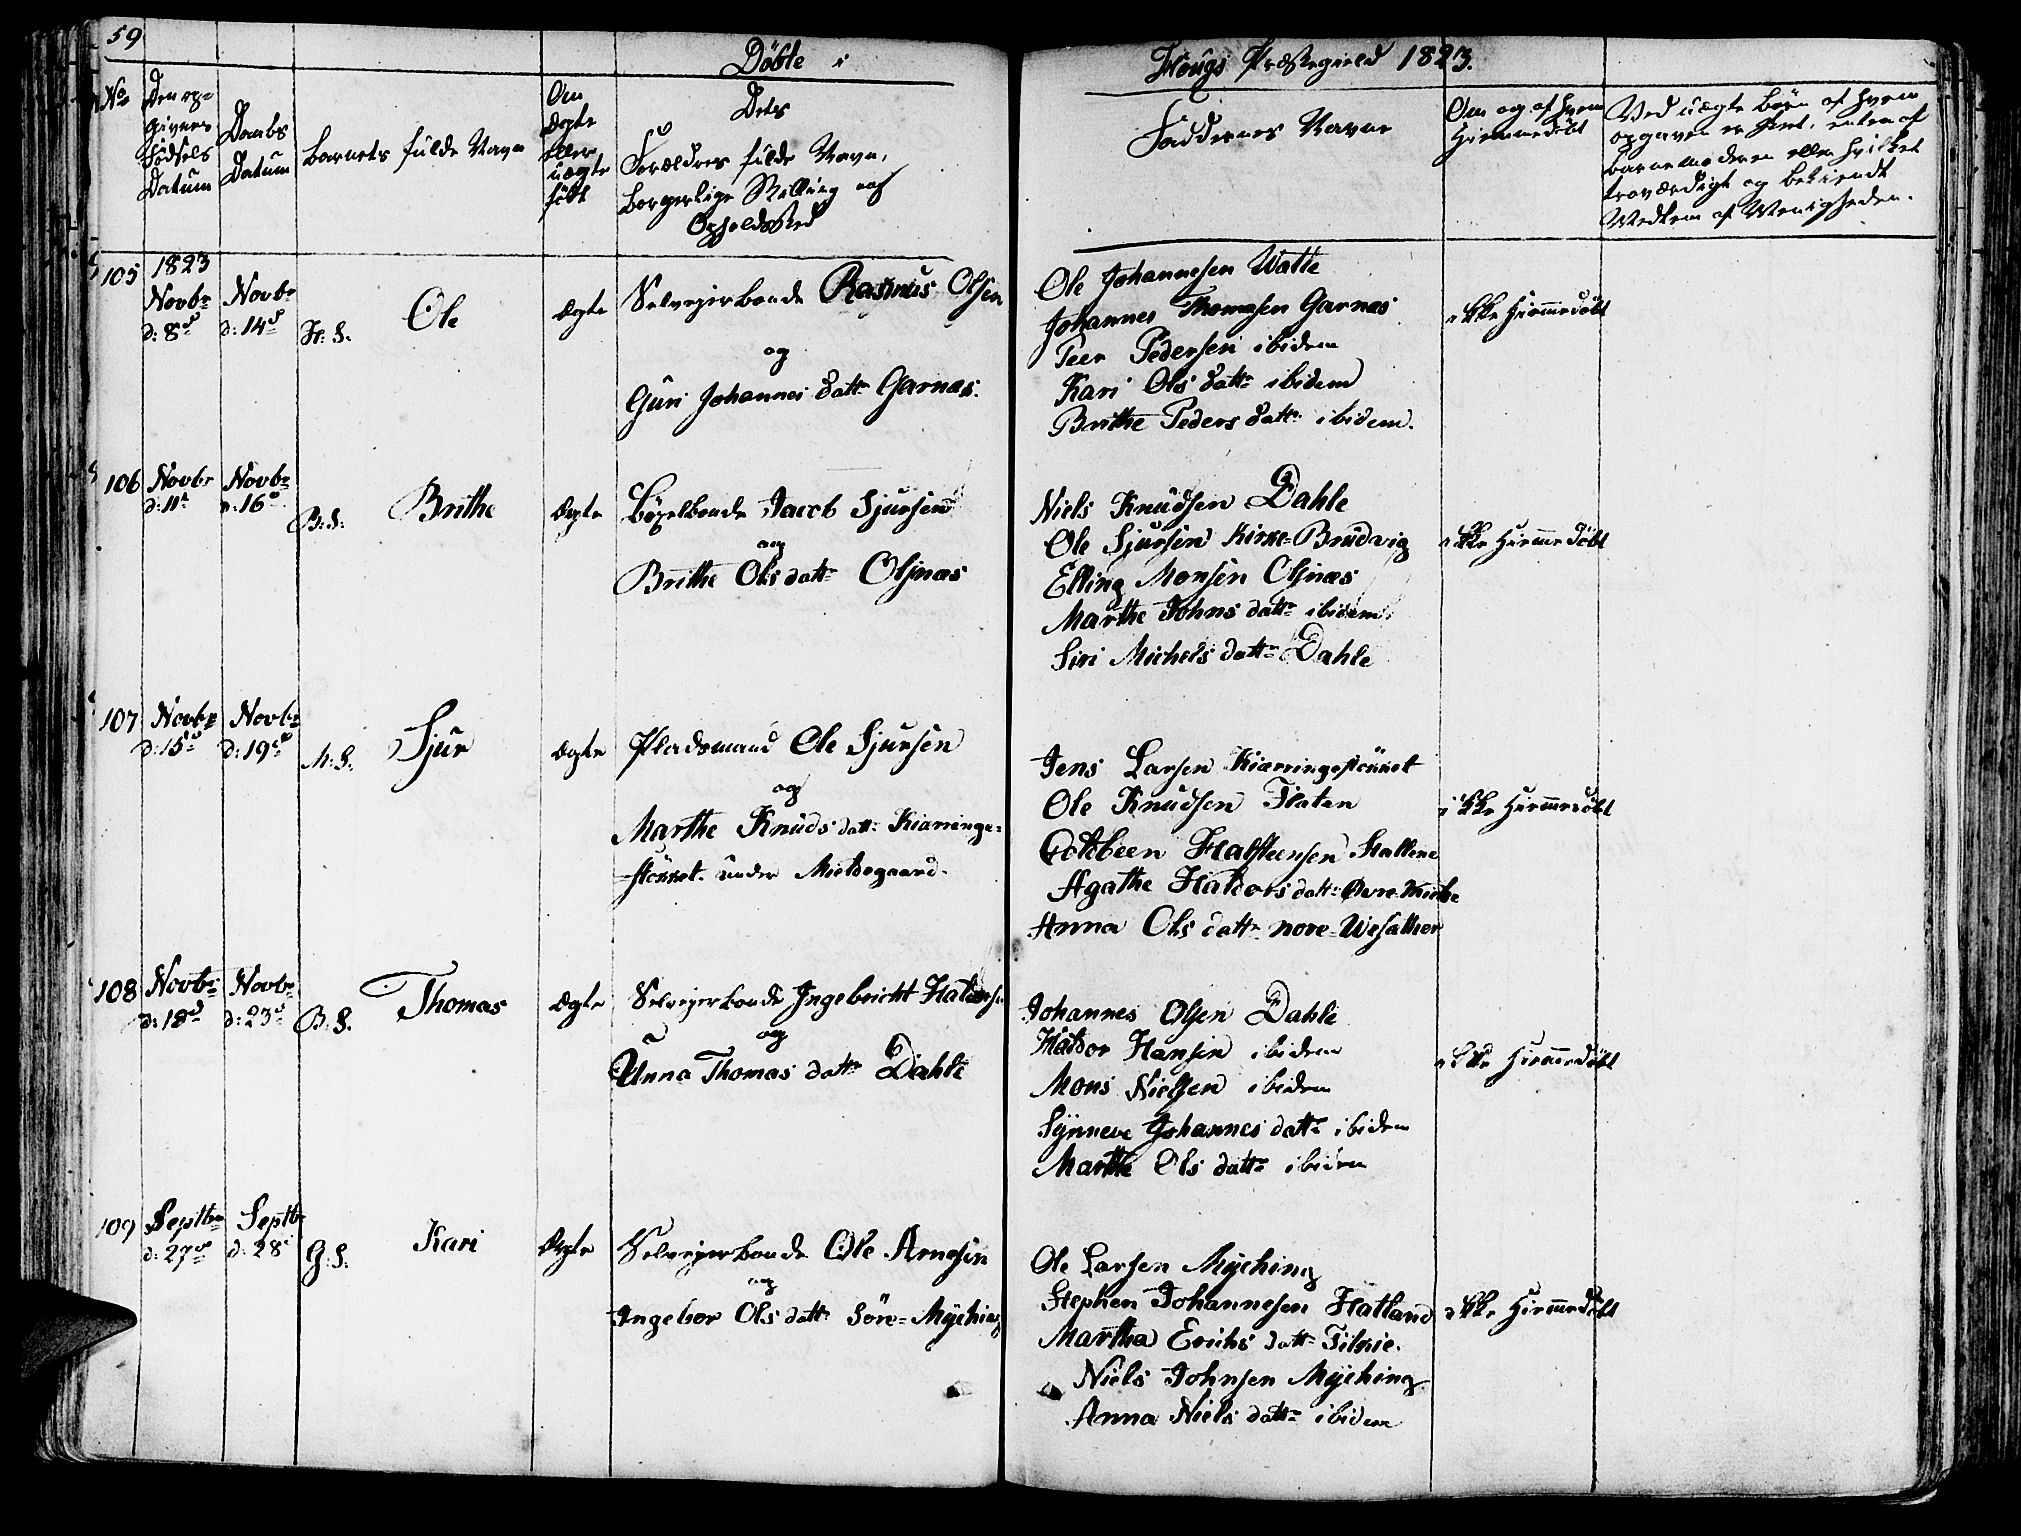 59
Döbte i
Hougs Præstegield 1823.
No
Den op-
givne
Födsels
Datum
Daabs
Datum
Barnets fulde Navn
Om
Ægte
eller
uægte
födt
Dets
Forældres fulde Navn,
borgerlige Stilling og
Opholdssted
Faddernes Navne
Om og af hvem
Hiemmedöbt
Ved uægte Börn af hvem
opgaven er skeet, enten af
barnemoderen eller hvilket
troværdigt og bekiendt
Medlem af Menigheden.
105
1823
Novbr
d: 8d
Novbr
d: 14d
H: S.
Ole
Ægte
Selveyerbonde Rasmus Olsen
og
Guri Johannes datt. Garnæs.
Ole Johannesen Watle
Johannes Thomesen Garnæs
Peer Pedersen ibidem
Kari Ols datt. ibidem
Brithe Peders datt. ibidem.
ikke Hiemmedöbt
106
Novbr
d: 11t
Novbr
d: 16d
B: S:
Brithe
Ægte
Böxelbonde Jacob Sjursen
og
Brithe Ols datt. Olsnæs
Niels Knudsen Dahle
Ole Sjursen Kirke-Brudvig
Elling Monsen Olsnæs
Marthe Johns datt. ibidem.
Siri Michels datt. Dahle
ikke Hiemmedöbt
107
Novbr
d: 15d
Novbr
d: 19d
M: S.
Sjur
Ægte
Pladsmand Ole Sjursen
og
Marthe Knuds datt. Kiærringe-
stöcket under Mieldegaard.
Jens Larsen Kiærringestöcket
Ole Knudsen Flaten
Halsteensen
Agathe Haldors datt. Övre-Mielde
Anna Ols datt. nore-
ikke Hiemmedöbt
108
Novbr
d: 18d
Novbr
d: 23d
B: S.
Thomas
Ægte
Selveyerbonde Ingebricht Haldorsen
og
Unna Thomas datt. Dahle
Johannes Olsen Dahle
Haldor Hansen ibidem
Mons Nielsen ibidem
Synneve Johannes datt. ibidem
Marthe Ols datt. ibidem
ikke Hiemmedöbt
109
Septbr
d: 27d
Septbr
d: 28d
G: S.
Kari
Ægte
Selveyerbonde Ole Arnesen
og
Ingebor Ols datt. Söre-Myching
Ole Larsen Myching
Stephen Johannesen Hatland
Martha Erichs datt. Tilkie.
Niels Johnsen Myching
Anna Niels datt. ibidem
ikke Hiemmedöbt